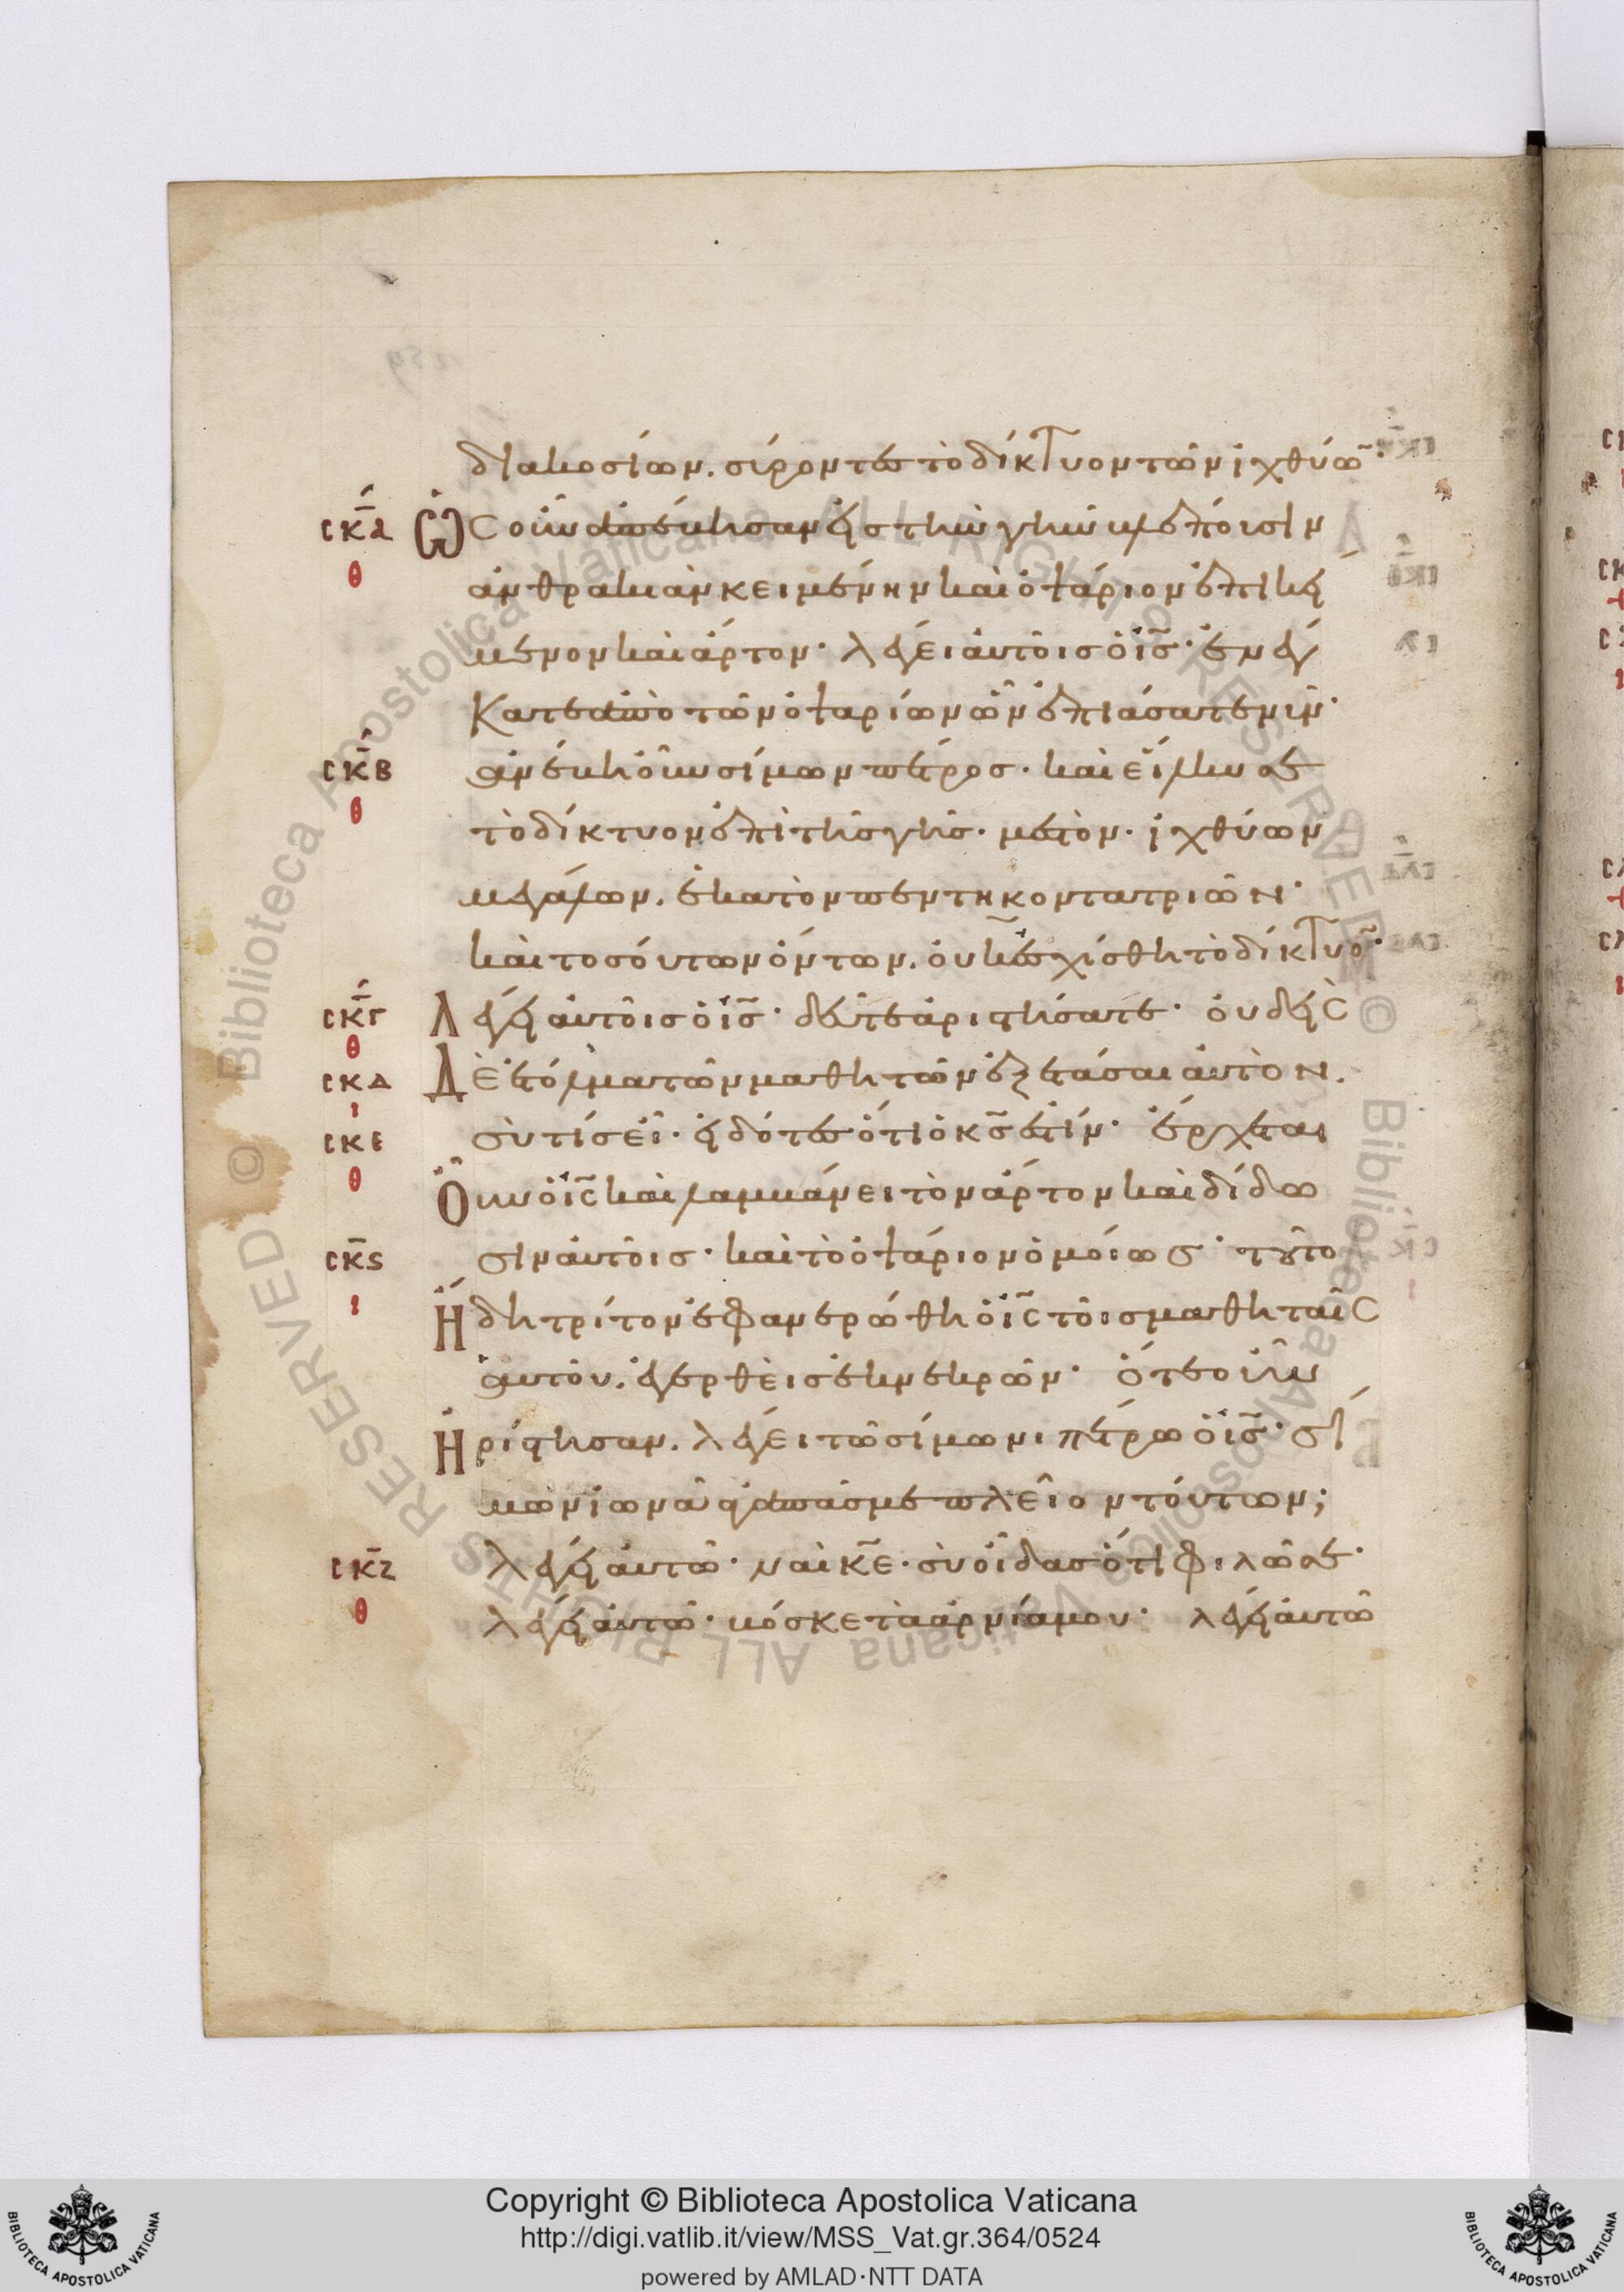 διακοσίων. σύροντες τὸ δίκτυον τῶν ἰχθύω̄·
ϹΚΑ Ὡς οὖν ἀπέβησαν εἰς τὴν γῆν βλέπουσιν
Θ ἀνθρακιὰν κειμένην καὶ ὀψάριον ἐπικεί
μενον καὶ ἄρτον· λέγει αὐτοῖς ὁ ἰ̅ς̅· ἐνέγ
κατε ἀπὸ τῶν ὀψαρίων ὧν ἐπιάσατε νῦν·
ϹΚΒ ἀνέβη οὖν σίμων πέτρος. καὶ εἵλκυσε
Θ τὸ δίκτυον ἐπὶ τῆς γῆς. μεστὸν. ἰχθύων
μεγάλων. ἑκατὸν πεντηκοντατριῶν·
καὶ τοσούτων ὄντων. οὐκ ἐσχίσθη τὸ δίκτυο̄·
ϹΚΓ Λέγει αὐτοῖς ὁ ἰ̅ς̅· δεῦτε ἀριστήσατε· οὐδεὶς
Θ
ϹΚΔ Δὲ ἐτόλμα τῶν μαθητῶν ἐξετάσαι αὐτὸν.
Ι
ϹΚΕ σὺ τίς εἶ. εἰδότες ὅτι ὁ κ̅ς̅ ἐστίν· ἔρχεται
Θ Οὖν ὁ ἰ̅ς̅ καὶ λαμβάνει τὸν ἄρτον καὶ δίδω
ϹΚϚ σιν αὐτοῖς· καὶ τὸ ὀψάριον ὁμοίως· τοῦτο
Ι Ἤδη τρίτον ἐφανερώθη ὁ ἰ̅ς̅ τοῖς μαθηταῖς
αὐτοῦ. ἐγερθεὶς ἐκ νεκρῶν· ὅτε οὖν
Ἠρίστησαν. λέγει τῶ σίμωνι πέτρω ὁ ἰ̅ς̅· σί
μων ἰωνᾶ ἀγαπᾶς με πλεῖον τούτων;
ϹΚΖ λέγει αὐτῶ· ναὶ κ̅ε̅. σὺ οἶδας ὅτι φιλῶ σε·
Θ λέγει αὐτῶ· βόσκε τὰ ἀρνία μου· λέγει αὐτῶ
Copyright © Biblioteca Apostolica Vaticana
http://digi.vatlib.it/view/MSS_Vat.gr.364/0524
powered by AMLAD·NTT DATA
BIBLIOTECA APOSTOLICA VATICANA
BIBLIOTECA APOSTOLICA VATICANA